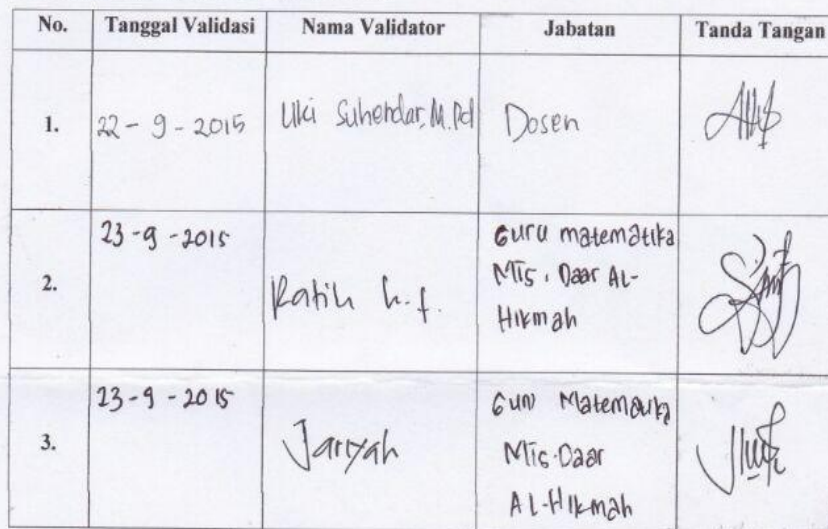 No. Tanggal Validasi Nama Validator Jabatan Tanda Tangan
1. 22 - 9 - 2015 Uki Suhendar, M.Pd Dosen
23 - 9 - 2015 Guru matematika
2. Ratih h.f. MTs. Daar AL-
Hikmah
23 - 9 - 2015 Guru Matematika
3. Jariyah MTs. Daar
AL-Hikmah